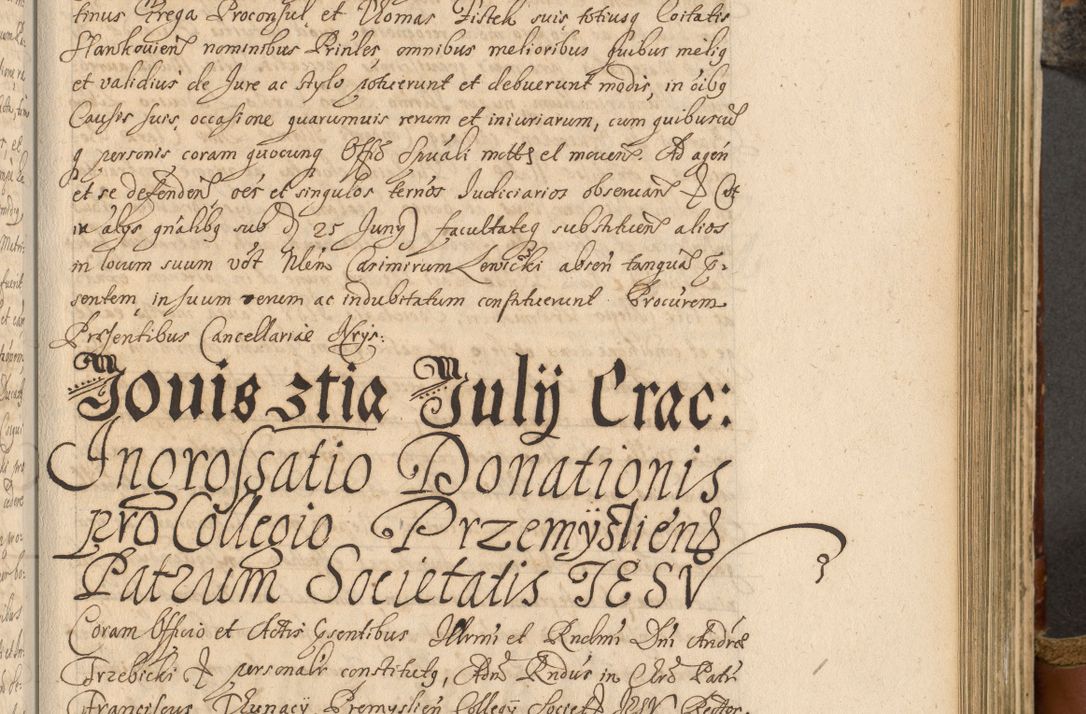 tinus Grega Proconsul et Thomas Fistek suis totiusq Coitatis
Stankovien nominibus Prinles omnibus melioribus quibus melig
et validius de Jure ac stylo potuerunt et debuerunt modis, in oibq
Causis suis, occasione quarumuis rerum et iniuriarum, cum quibuscu
q personis coram quocunq Offo Spuali mott el mouen. Ad agen
et se defenden, oes et singulos ternos Judiciarios observan
in alys gnalibq sub D 25 Juny) facultateq substituen alios
in locum suum vot Nlem Casimirum Lewicki absen tanqua p-
sentem in suum verum ac indubitatum constituerunt Procurem
Prasentibus Cancellariae Nrys:
Jouis 3tia Julij Crac:
Ingrossatio Donationis
pro Collegio Przemyslien
Patrum Societatis JESV
Coram Officio et Actis psentibus Illrmi et Rndmi Dni Andreæ
Trzebicki personalr constitutq, Adm Rndus in Chro Patr
Franciscus Premyslien Collegÿ Societ JESV Rector